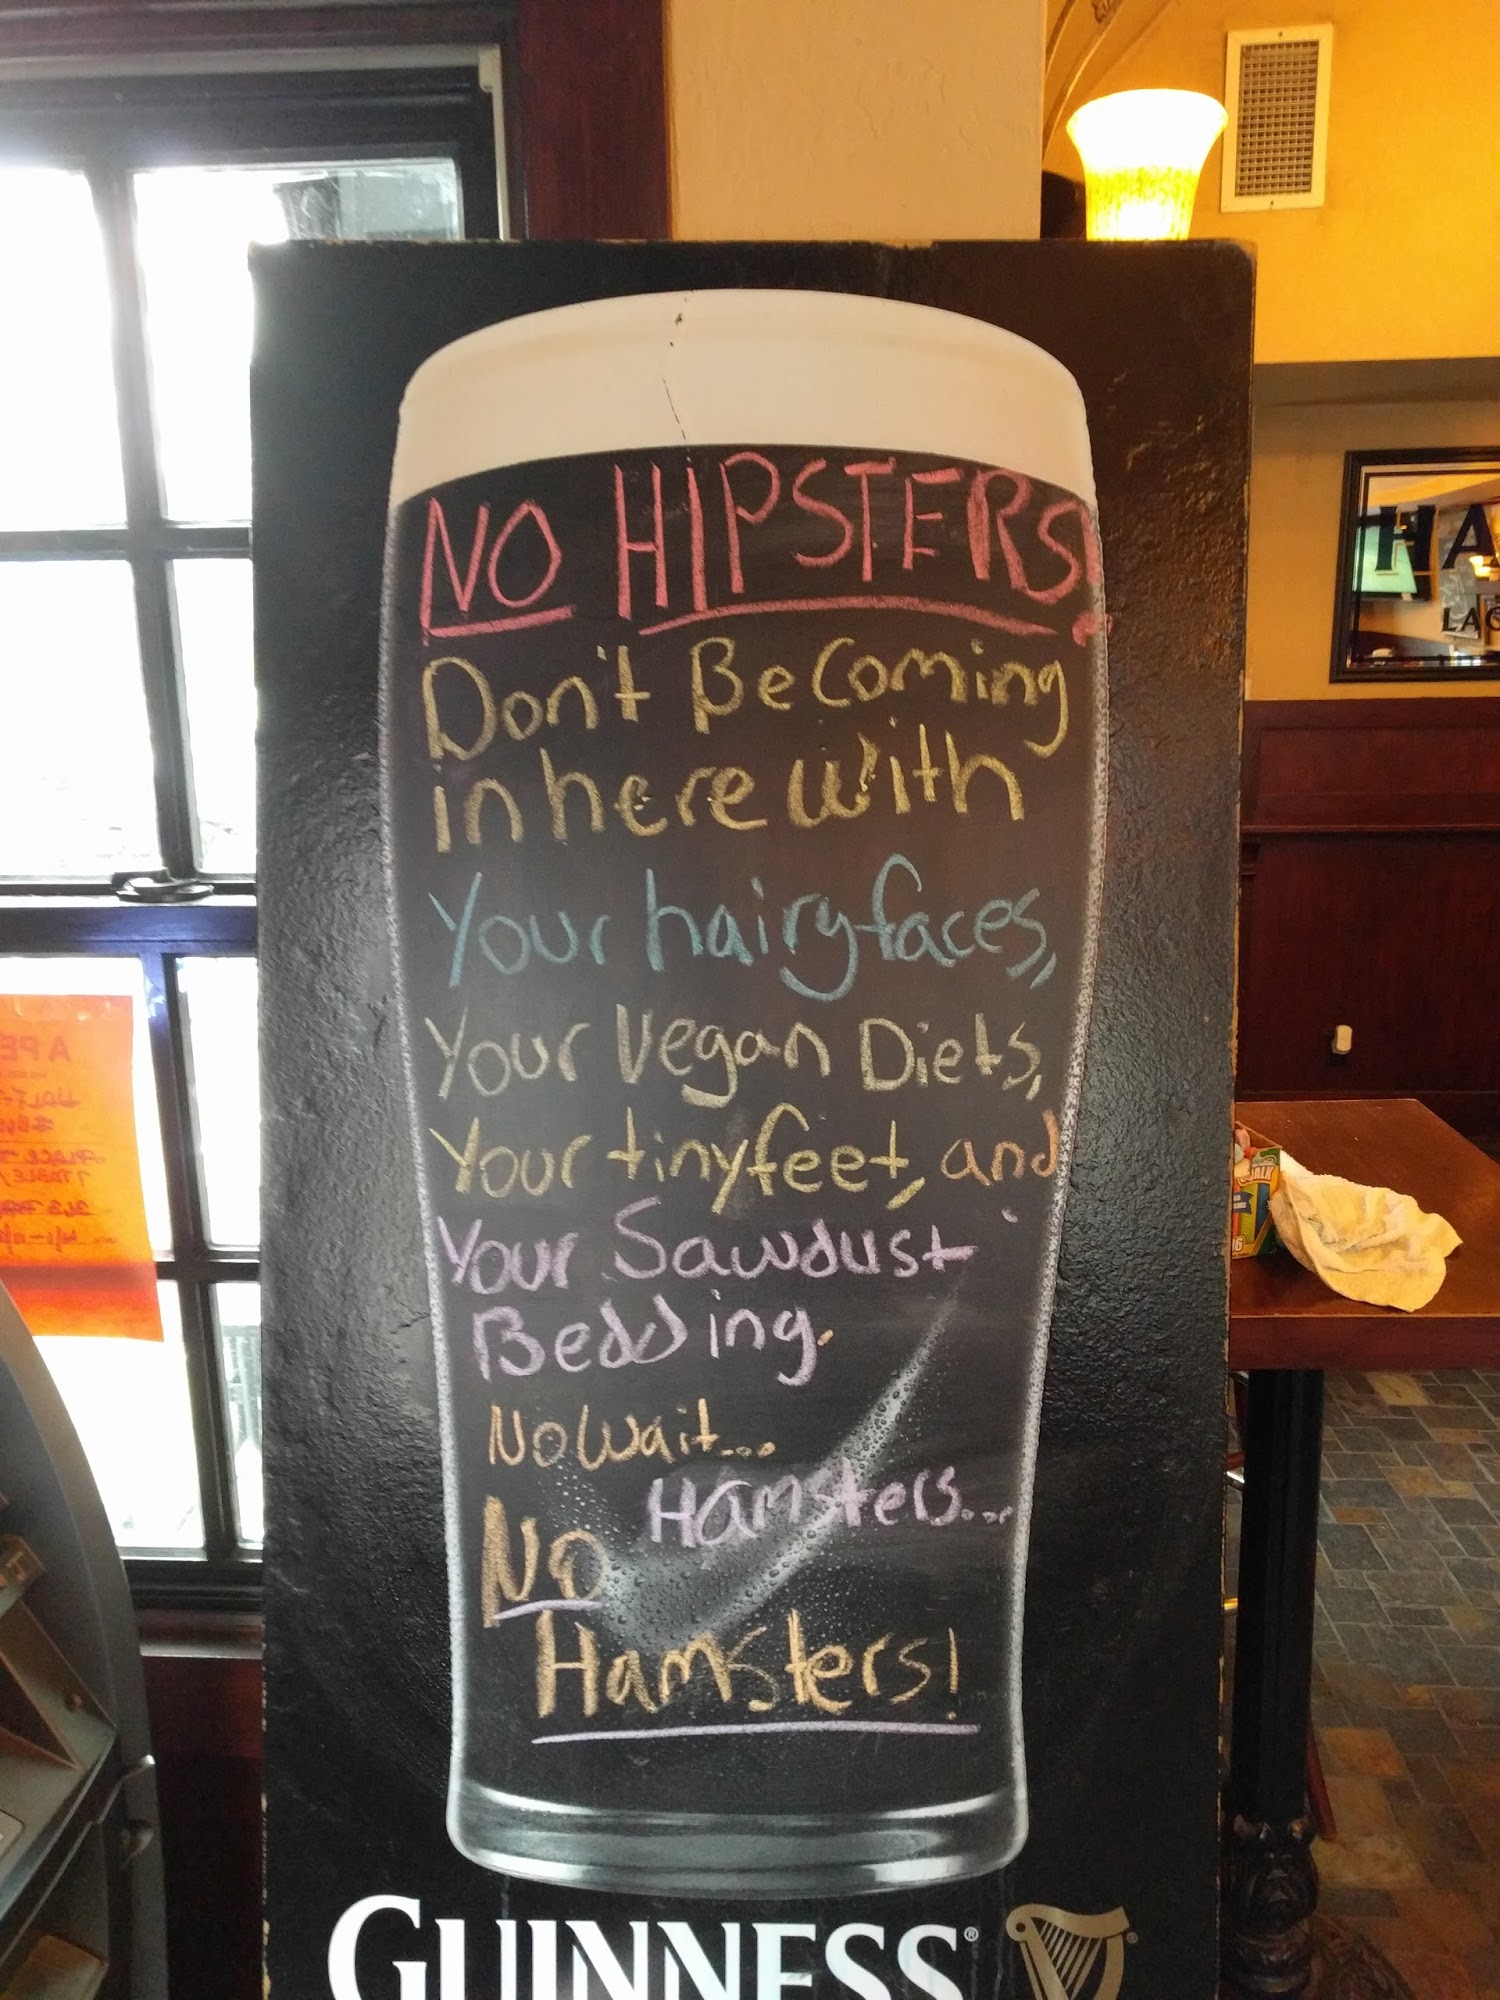 NO HIPSTERS!
Don't Be Coming
in here with
Your hairy faces,
Your Vegan Diets,
Your tiny feet, and
Your Sawdust
Bedding.
No Wait...
Hamsters...
NO
Hamsters!
GUINNESS®
HA
LAG
A PE